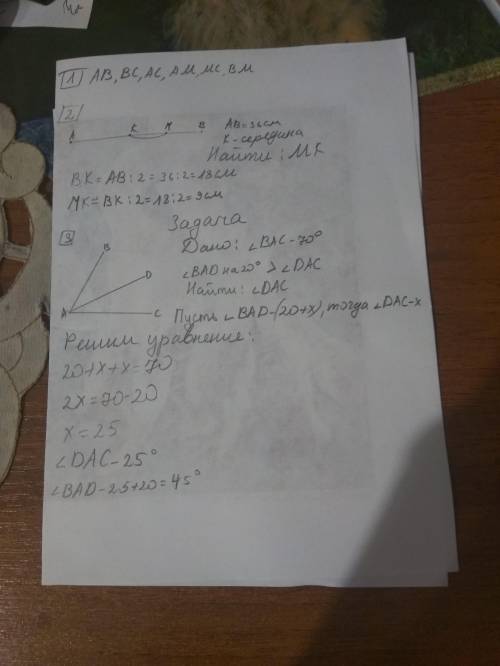 1 AB, BC, AC, AM, MC, BM
2
A K M B
AB = 36см
K - середина
Найти: MK
BK = AB : 2 = 36 : 2 = 18см
MK = BK : 2 = 18 : 2 = 9см
Задача
3
Дано: ∠BAC - 70°
∠BAD на 20° > ∠DAC
Найти: ∠DAC
B
D
A
C
Пусть ∠BAD - (20+x), тогда ∠DAC - x
Решим уравнение:
20+x+x=70
2x=70-20
x = 25
∠DAC - 25°
∠BAD - 25+20 = 45°